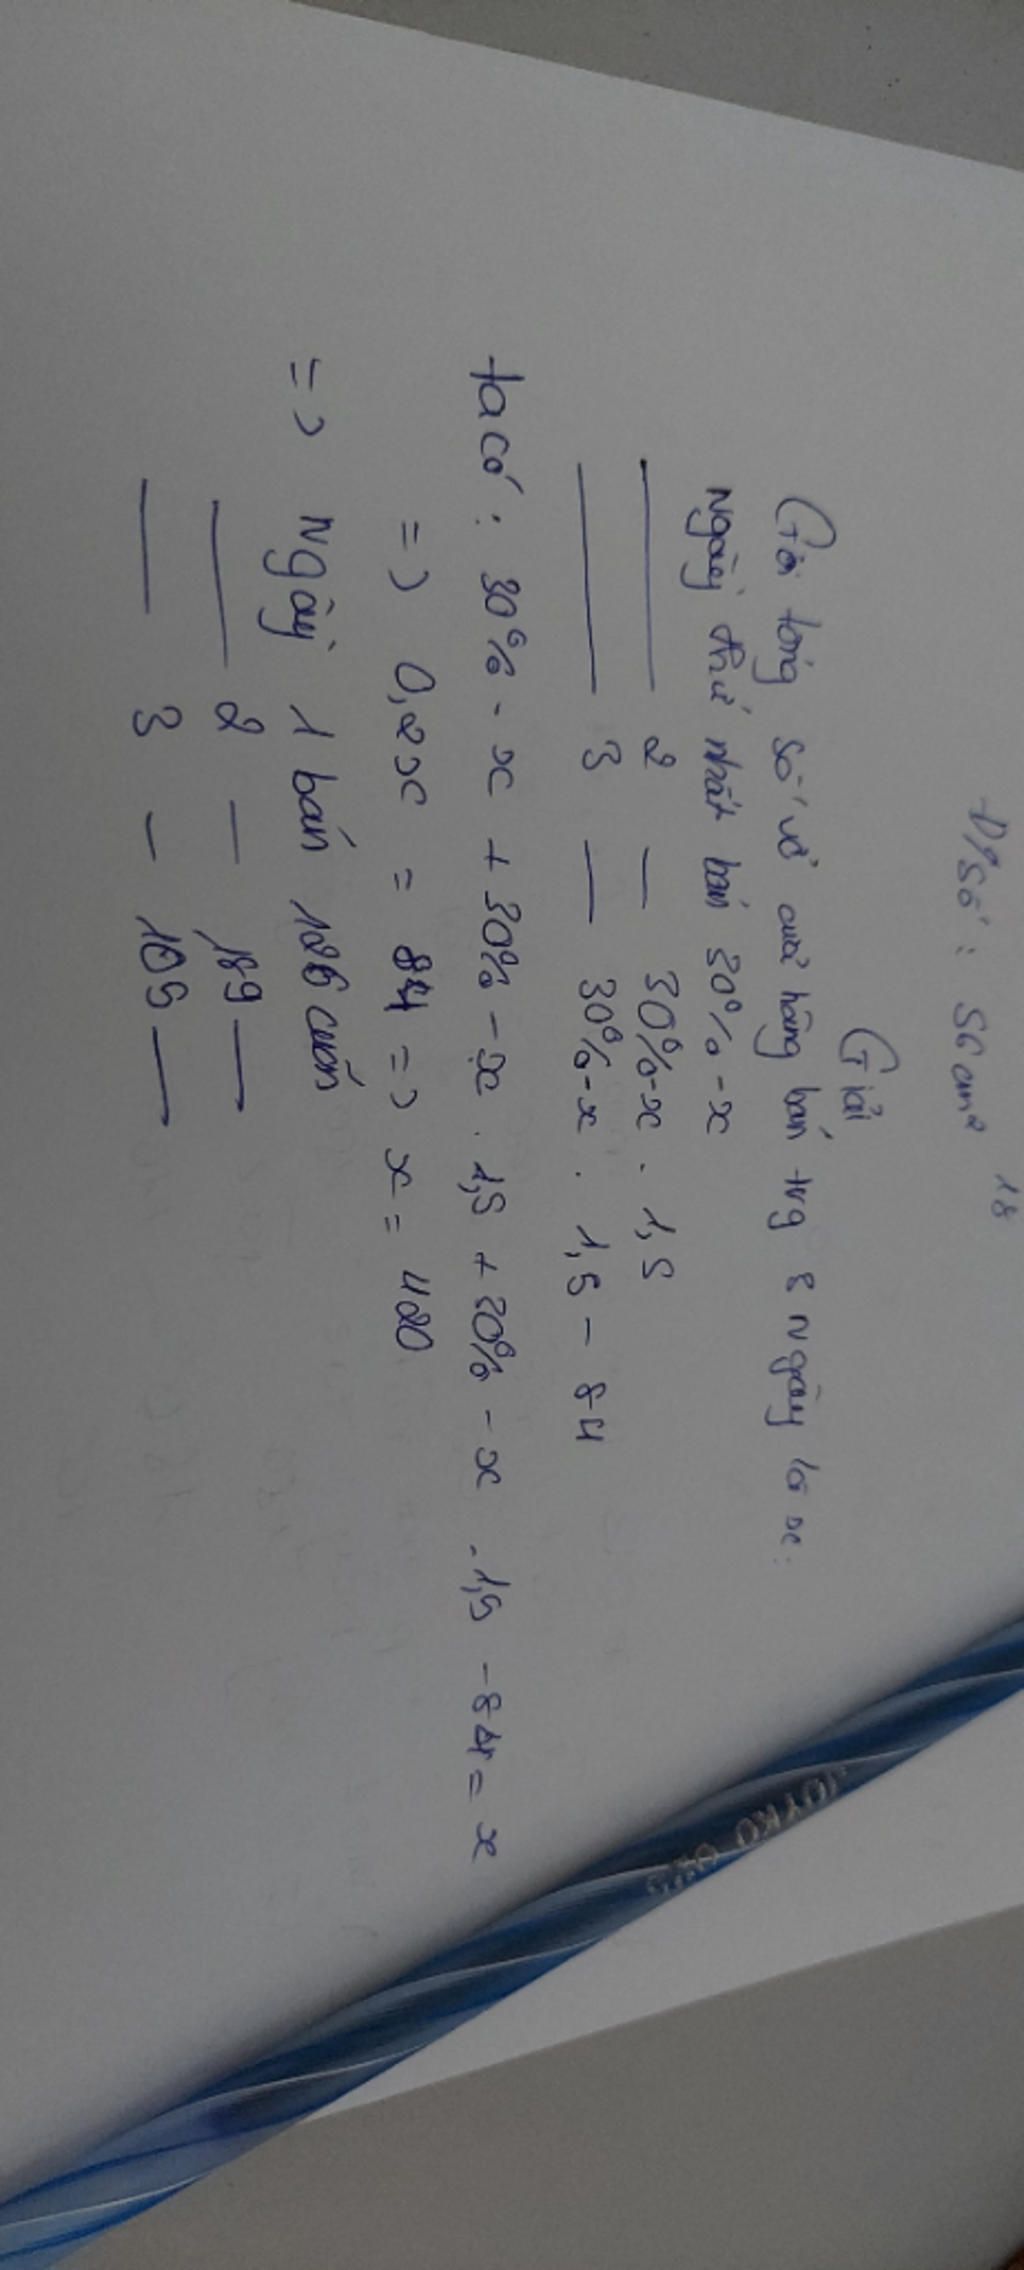 Đ/số : 56 cm²
18
Giải
Gọi tổng số vở cửa hàng bán trg 3 ngày là x:
Ngày thứ nhất bán 30% - x
2 — 30% - x . 1,5
3 — 30% - x . 1,5 - 84
ta có : 30% - x + 30% - x . 1,5 + 30% - x . 1,5 - 84 = x
=> 0,2x = 84 => x = 420
=> Ngày 1 bán 126 cuốn
2 — 189 —
3 — 105 —
JOYKO